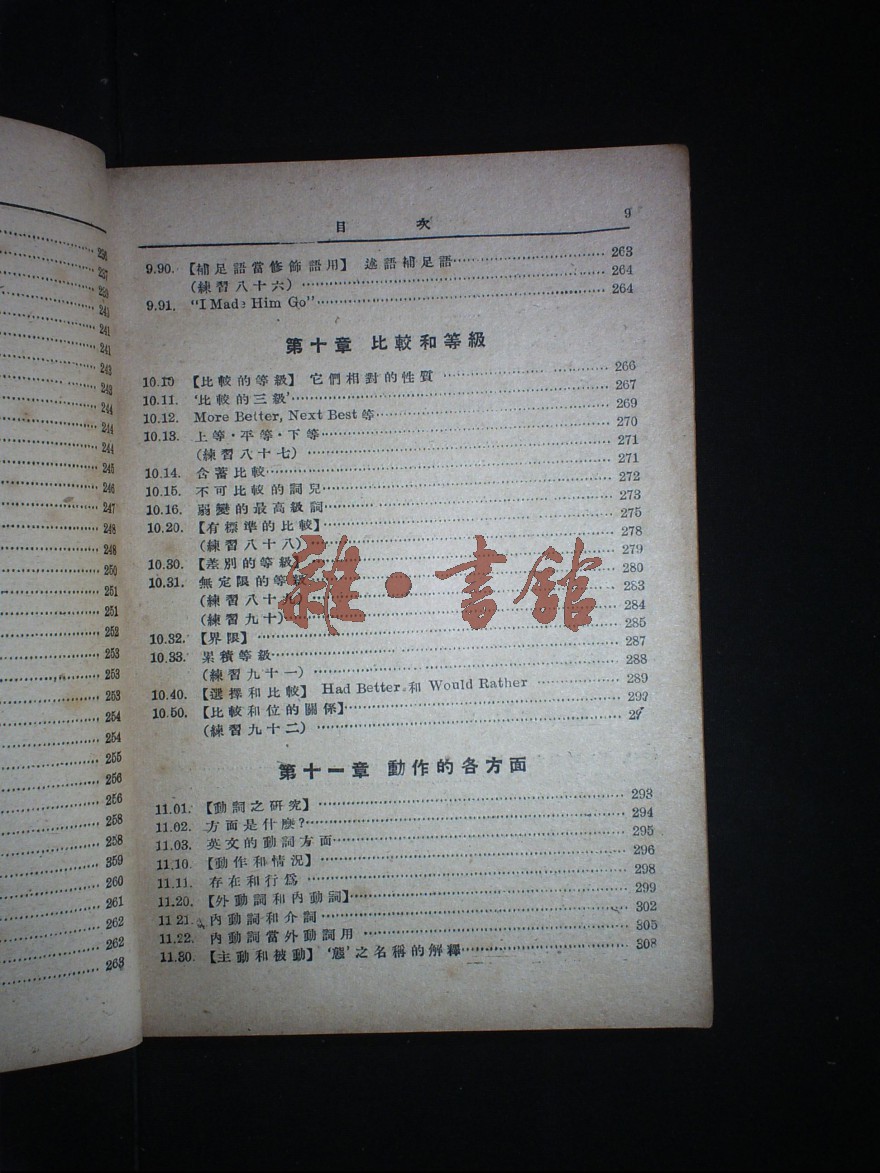 236
237
239
240
241
241
243
243
244
244
244
245
246
247
248
248
250
251
251
252
253
253
253
254
254
255
256
256
258
258
359
260
261
262
262
263
目 次 9
9.90. 【補足語當修飾語用】 述語補足語 263
(練習八十六) 264
9.91. "I Made Him Go" 264
第十章 比較和等級
10.10 【比較的等級】 它們相對的性質 266
10.11. '比較的三級' 267
10.12. More Better, Next Best 等 269
10.13. 上等·平等·下等 270
(練習八十七) 271
10.14. 含著比較 271
10.15. 不可比較的詞兒 272
10.16. 弱變的最高級詞 273
10.20. 【有標準的比較】 275
(練習八十八) 278
10.30. 【差別的等級】 279
10.31. 無定限的等級 280
(練習八十九) 283
(練習九十) 284
10.32. 【界限】 285
10.33. 累積等級 287
(練習九十一) 288
10.40. 【選擇和比較】 Had Better 和 Would Rather 289
10.50. 【比較和位的關係】 290
(練習九十二) 29
第十一章 動作的各方面
11.01. 【動詞之研究】 293
11.02. 方面是什麼? 294
11.03. 英文的動詞方面 295
11.10. 【動作和情況】 296
11.11. 存在和行爲 298
11.20. 【外動詞和內動詞】 299
11 21. 內動詞和介詞 302
11.22. 內動詞當外動詞用 305
11.30. 【主動和被動】 '態'之名稱的解釋 308
雜·書館